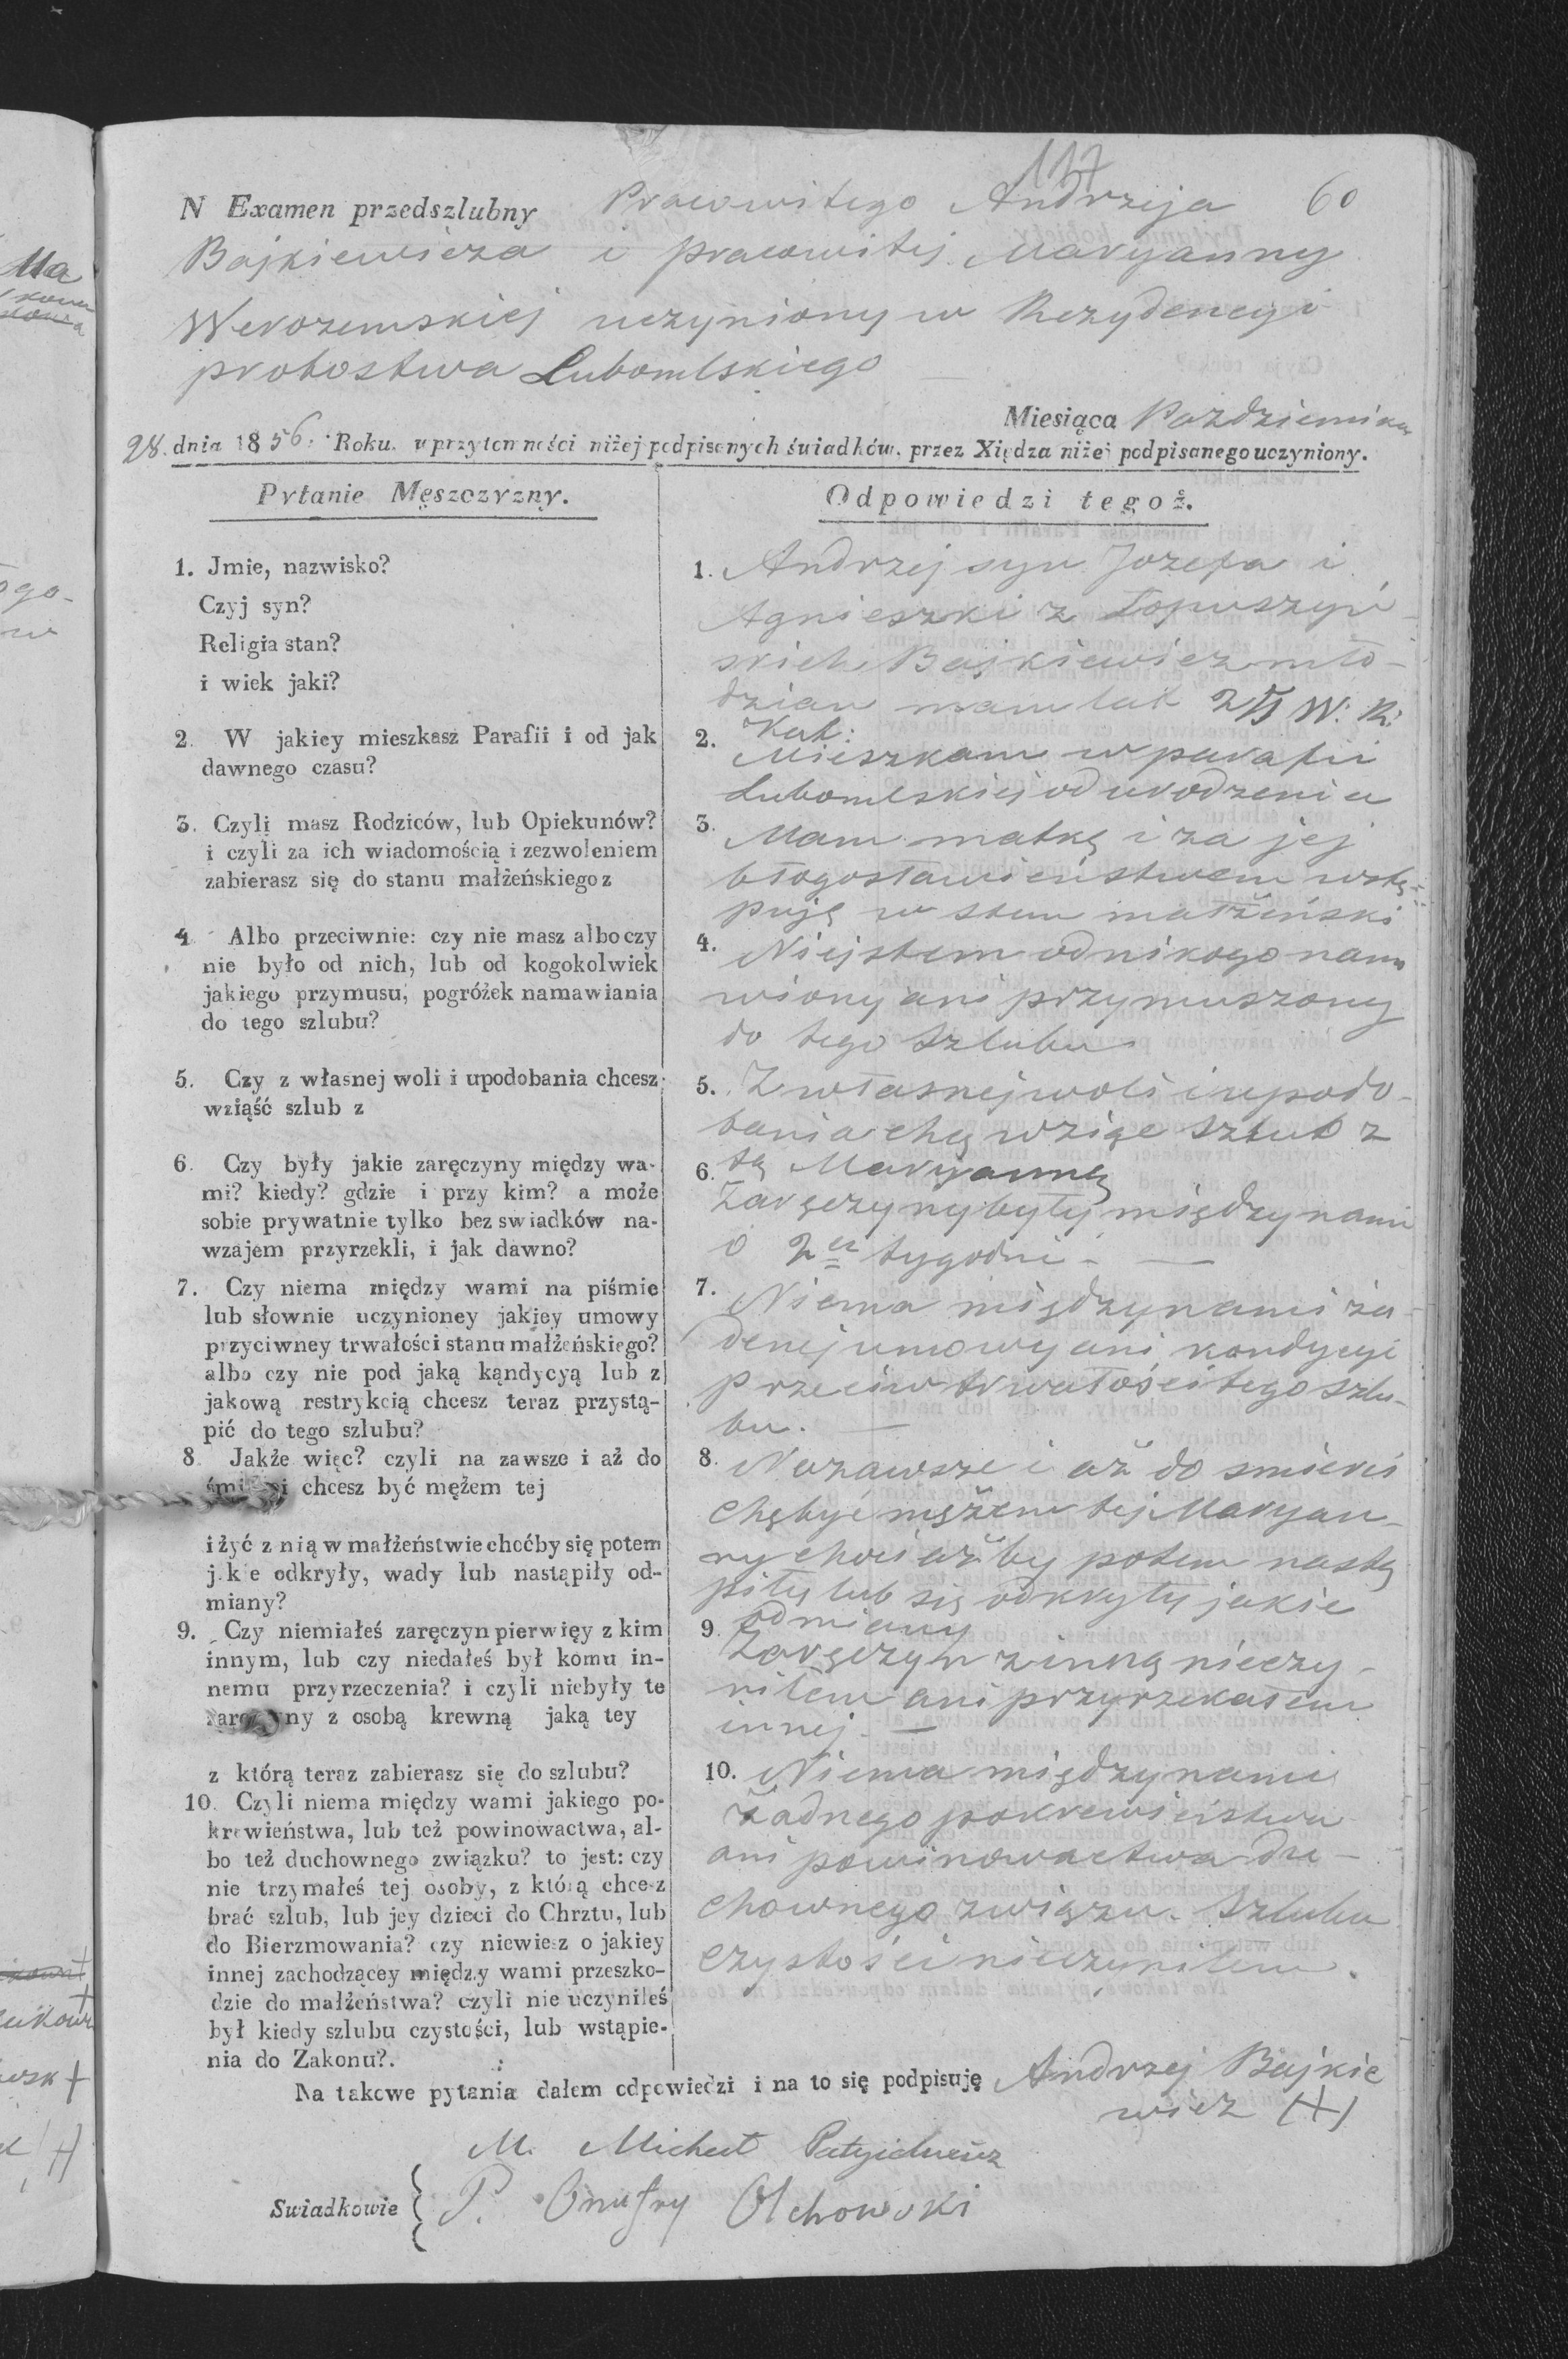 117
N Examen przedszlubny Pracowitego Andrzeja 60
Bajkiewicza i pracowitej Maryanny
Werozemskiej uczyniony w Rezydencyi
probostwa Lubomlskiego
Miesiąca Pazdziernika
28. dnia 1856. Roku. w przytomności niżej podpisanych świadków. przez Xiędza niżej podpisanego uczyniony.
Pytanie Męszczyzny.
1. Jmie, nazwisko?
Czyj syn?
Religia stan?
i wiek jaki?
2. W jakiey mieszkasz Parafii i od jak
dawnego czasu?
3. Czyli masz Rodziców, lub Opiekunów?
i czyli za ich wiadomością i zezwoleniem
zabierasz się do stanu małżeńskiego z
4. Albo przeciwnie: czy nie masz albo czy
nie było od nich, lub od kogokolwiek
jakiego przymusu, pogróżek namawiania
do tego szlubu?
5. Czy z własnej woli i upodobania chcesz
wziąść szlub z
6. Czy były jakie zaręczyny między wa-
mi? kiedy? gdzie i przy kim? a może
sobie prywatnie tylko bez swiadków na-
wzajem przyrzekli, i jak dawno?
7. Czy niema między wami na piśmie
lub słownie uczynioney jakiey umowy
przyciwney trwałości stanu małżeńskiego?
albo czy nie pod jaką kąndycyą lub z
jakową restrykcią chcesz teraz przystą-
pić do tego szlubu?
8. Jakże więc? czyli na zawsze i aż do
chcesz być mężem tej
i żyć z nią w małżeństwie choćby się potem
j.k e odkryły, wady lub nastąpiły od-
miany?
9. Czy niemiałeś zaręczyn pierwięy z kim
innym, lub czy niedałeś był komu in-
nemu przyrzeczenia? i czyli niebyły te
z osobą krewną jaką tey
z którą teraz zabierasz się do szlubu?
10. Czyli niema między wami jakiego po-
krewieństwa, lub też powinowactwa, al-
bo też duchownego związku? to jest: czy
nie trzymałeś tej osoby, z którą chcesz
brać szlub, lub jey dzieci do Chrztu, lub
do Bierzmowania? czy niewiesz o jakiey
innej zachodzącey między wami przeszko-
dzie do małżeństwa? czyli nie uczyniłeś
był kiedy szlubu czystości, lub wstąpie-
nia do Zakonu?.
Odpowiedzi tegoż.
1. Andrzej syn Jozefa i
Agnieszki z Łopuszyń-
skich Bajkiewicz mło-
dzian mam lat W. R.
Kat:
2. Mieszkam w parafii
Lubomlskiej od urodzenia
3. Mam matkę i za jej
błogosławieństwem wstę-
puję w stan małżeński
4. Niejstem od nikogo namo
wiony ani przymuszony
do tego szlubu
5. Z własnej woli i upodo-
bania chcę wziąc szlub z
tą Maryanną
6. Zaręczyny były między nami
o 2ch tygodni
7. Niema między nami ża-
denej umowy ani kondycyi
przeciw trwałości tego szlu-
bu.
8. Nazawsze i aż do smierci
chę być mężem tej Maryan-
ny chociażby potem nastę
piły lub się odkryły jakie
odmiany
9. Zaręczyn z inną nieczy-
niłem ani przyrzekałem
innej.
10. Niema między nami
żadnego pokrewieństwa
ani powinowactwa du-
chownego związu. Szlubu
czystości nieczyniłem.
Na takowe pytania dałem odpowiedzi i na to się podpisuję Andrzej Bajkie
wicz (+)
M. Michał
Swiadkowie { P. Onufry Olchowski